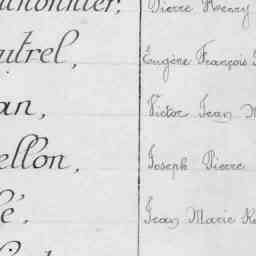 Pierre Henry
utrel, Eugène François
an, Victor Jean M
ellon, Joseph Pierre
é, Jean Marie R